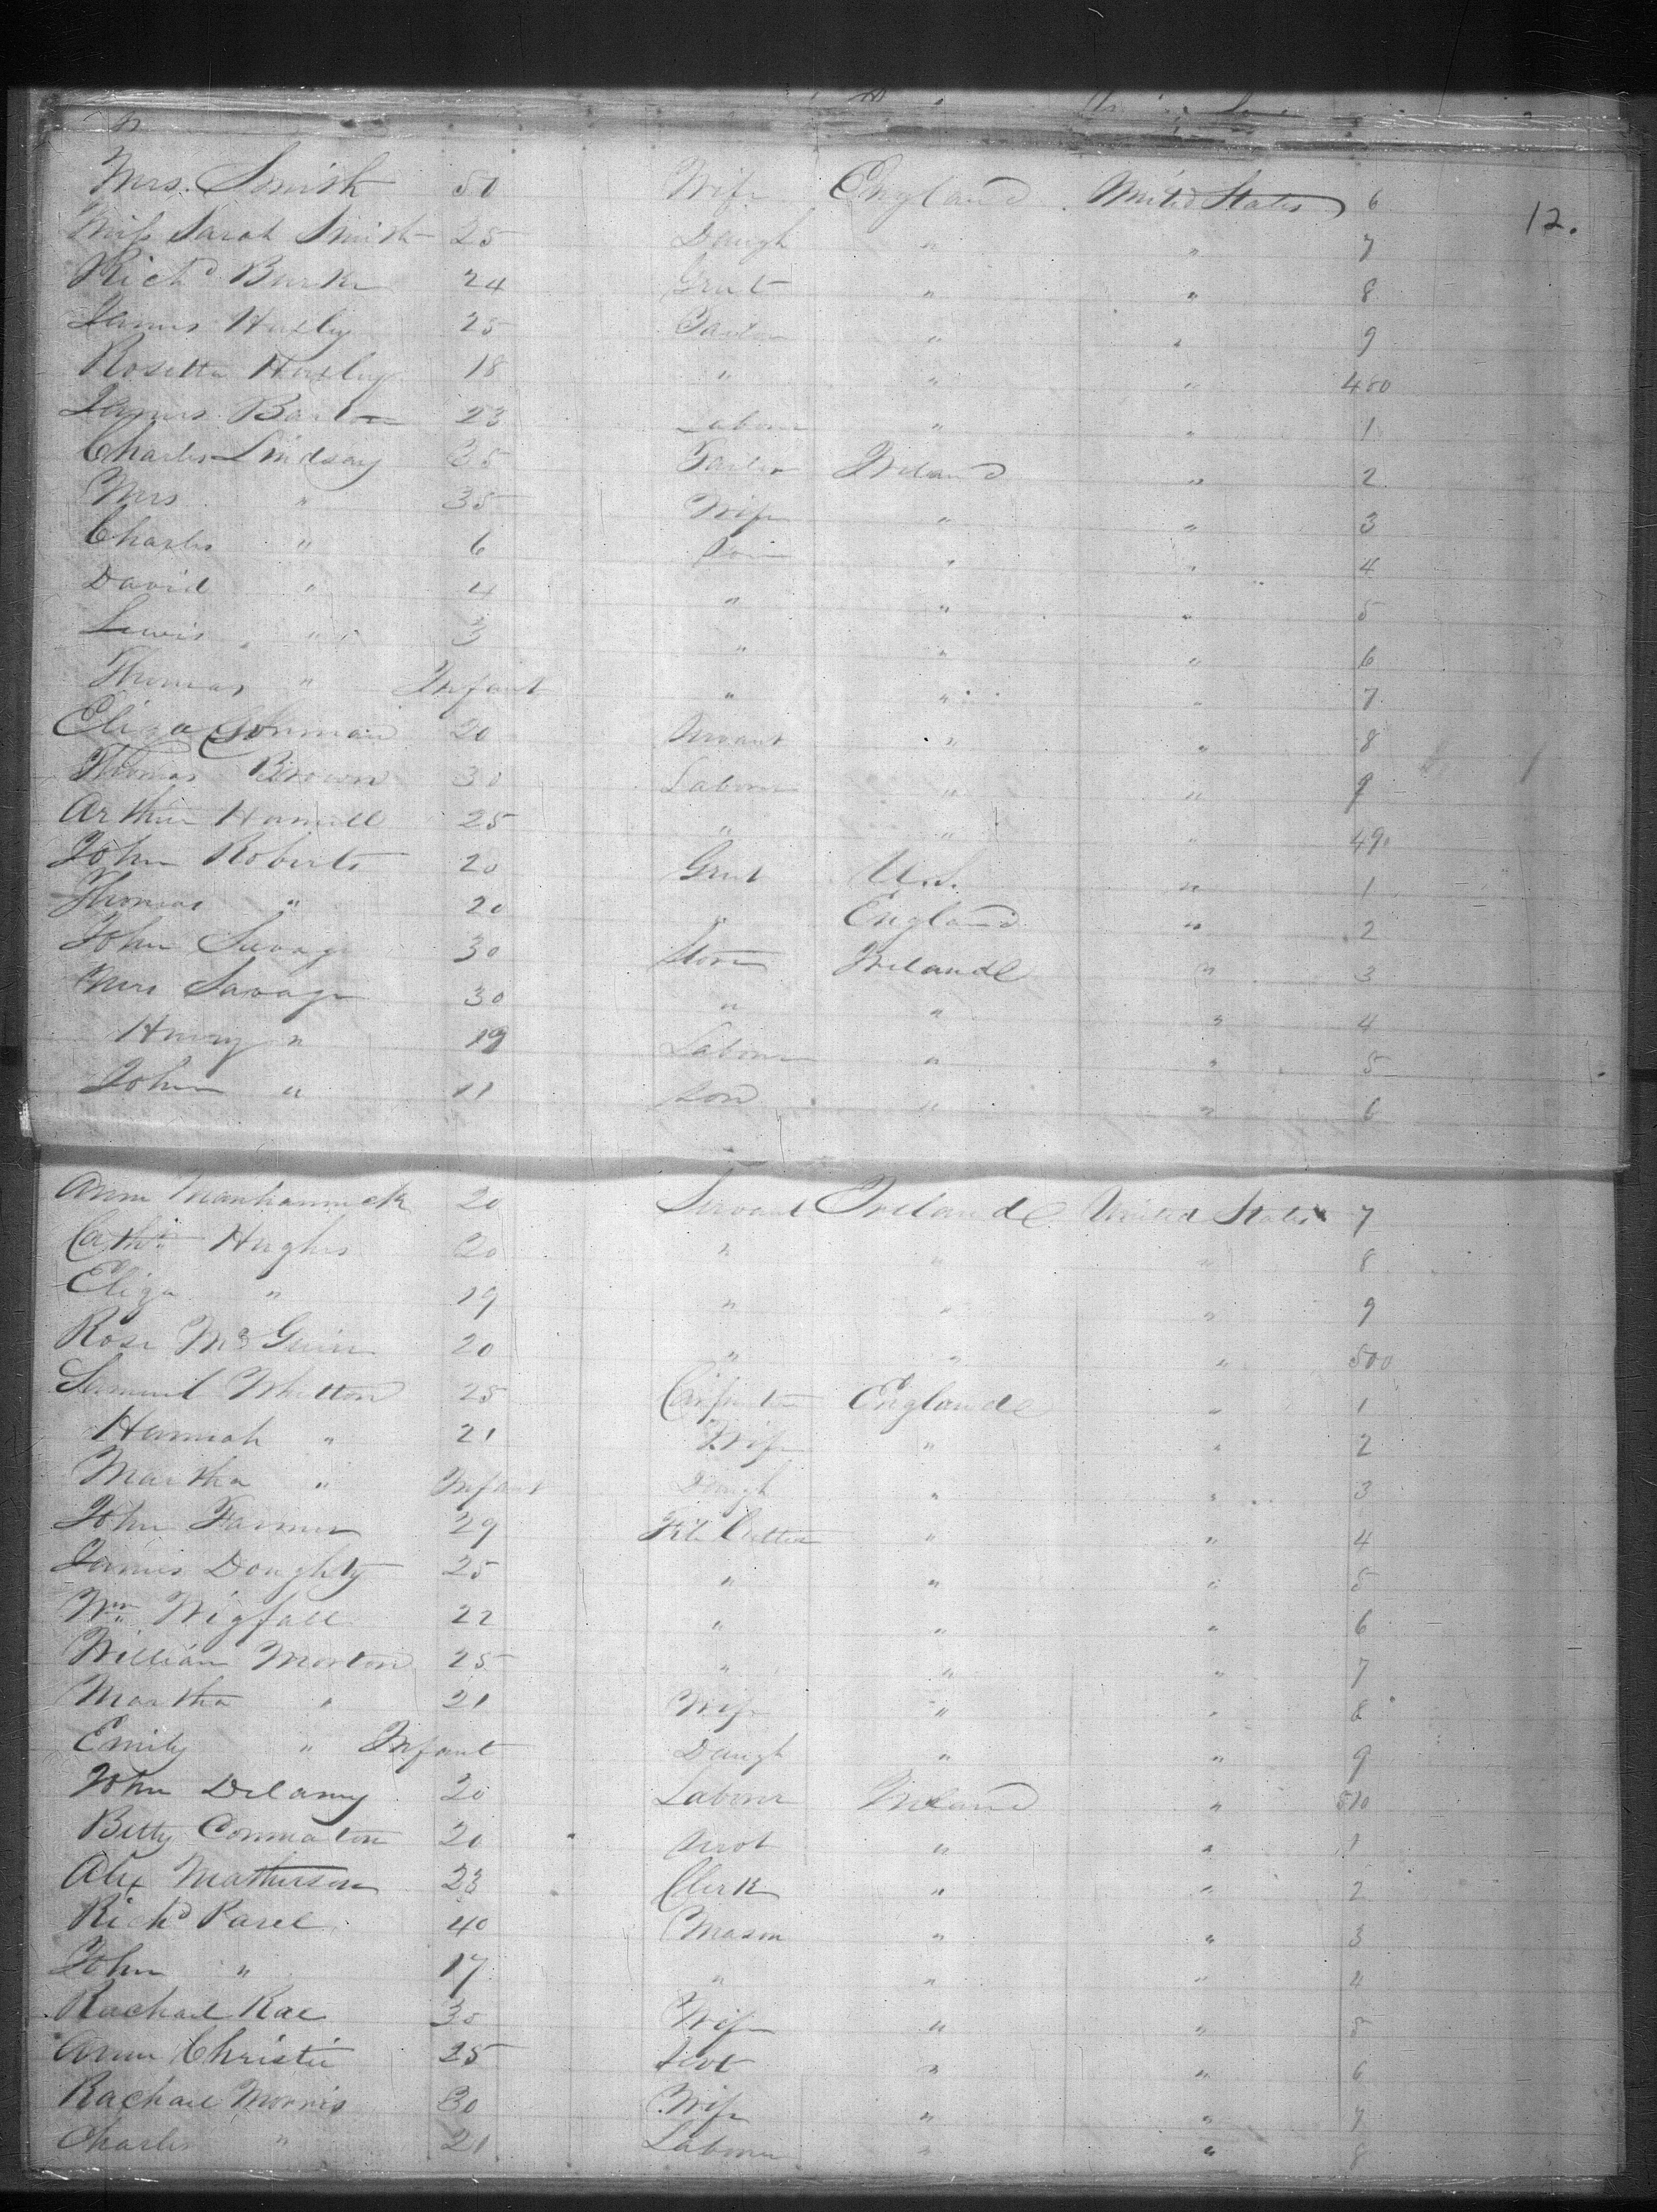 Mrs. Smith 50 Wife England United States 6
12.
Miss Sarah Smith 25 Daugh " " 7
Richd Burke 24 Gent " " 8
James Huxley 25 Tailor " " 9
Rosetta Huxley 18 " " " 480
James Barton 23 Labour " " 1
Charles Lindsay 35 Tailor Ireland " 2
Mrs " 35 Wife " " 3
Charles " 6 Son " " 4
David " 4 " " " 5
Lewis " 3 " " " 6
Thomas " Infant " " " 7
Eliza Gorman 20 Servant " " 8
Thomas Brown 30 Labour " " 9
Arthur Hamill 25 " " " 490
John Roberts 20 Gent U.S. " 1
Thomas " 20 " England " 2
John Savage 30 Ireland " 3
Mrs Savage 30 " " " 4
Henry " 19 Labour " " 5
John " 11 Son " " 6
Ann 20 Servant Ireland United States 7
Cathn Hughes 20 " " " 8
Eliza " 19 " " " 9
Rose McGuin 20 " " " 500
Samuel Whitton 25 Carpenter England " 1
Hannah " 21 Wife " " 2
Martha " Infant Daugh " " 3
John Farmer 29 File Cutter " " 4
James Doughty 25 " " " 5
Wm Wigfall 22 " " " 6
William Morton 25 " " " 7
Martha " 21 Wife " " 8
Emily " Infant Daugh " " 9
John Delany 20 Labour Ireland " 510
Betty 20 Servt " " 1
Alex Matherson 23 Clerk " " 2
Richd 40 Mason " " 3
John " 17 " " " 4
Rachael Rae 30 Wife " " 5
Ann Christie 25 Servt " " 6
Rachael Morris 30 Wife " " 7
Charles " 21 Labour " " 8